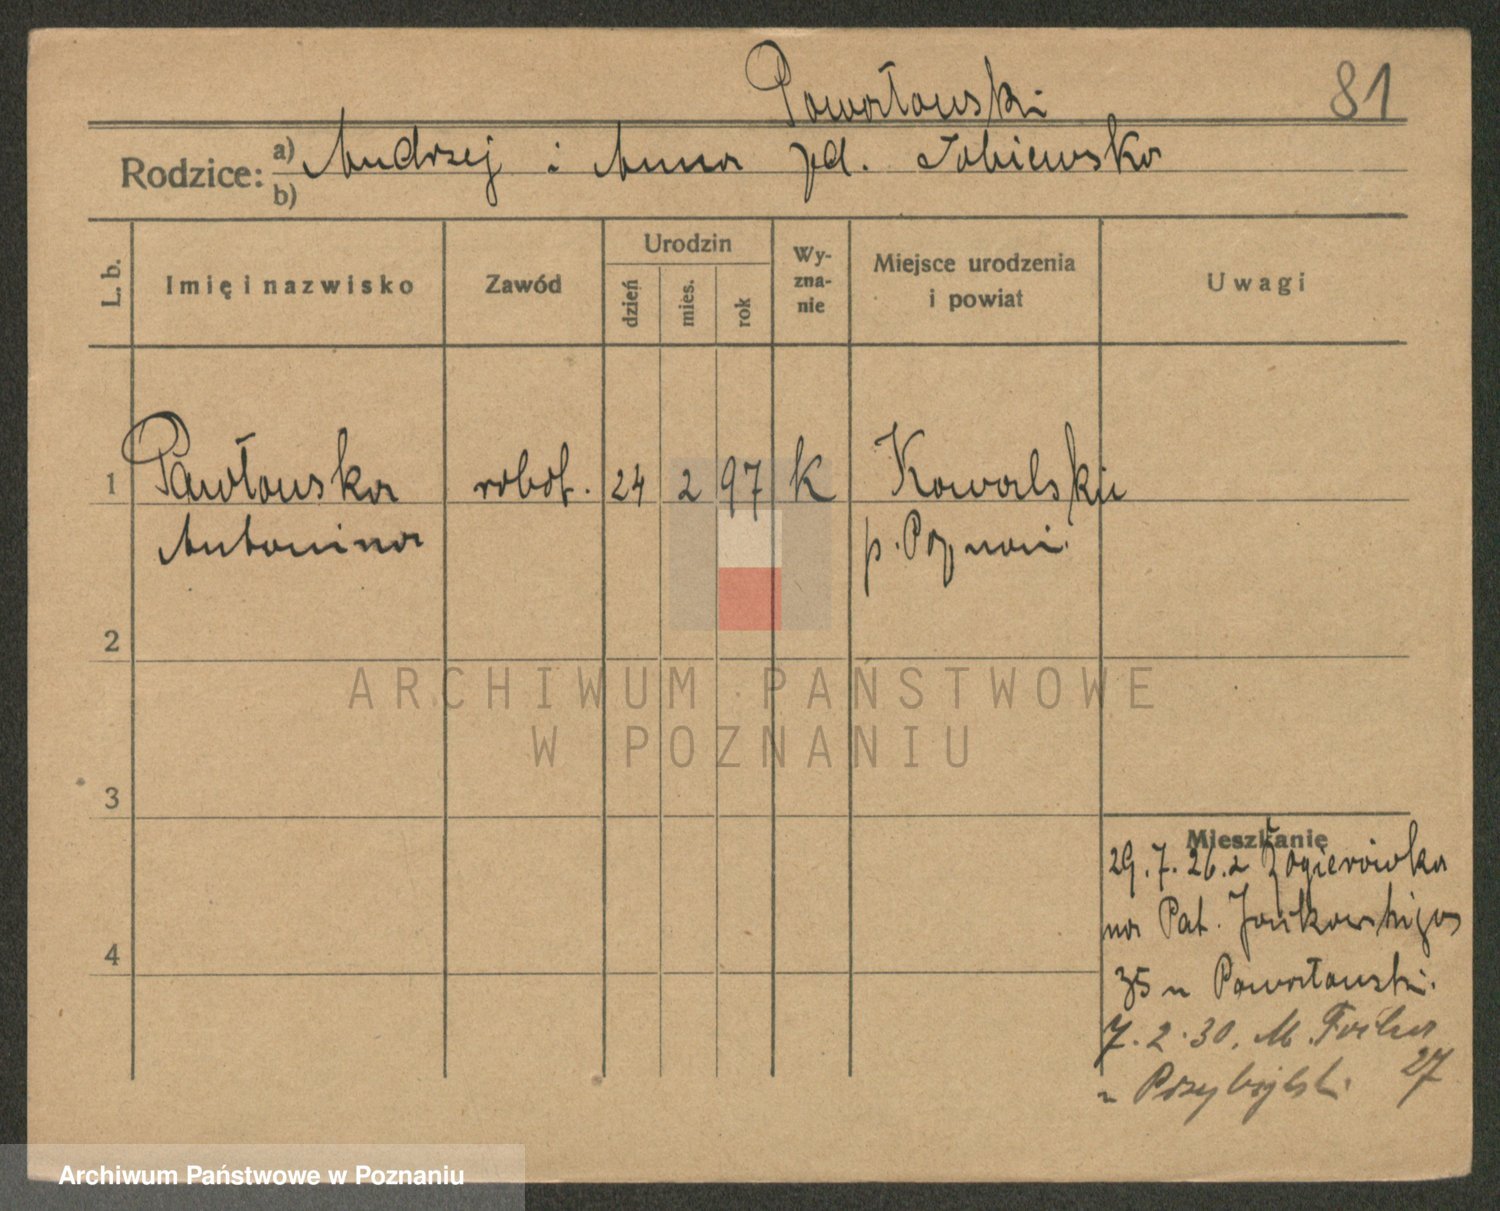 Pawłowski 81
Rodzice: a) Andrzej i Anna zd. Sobiewska
b)
L. b. Imię i nazwisko Zawód Urodzin dzień mies. rok Wyznanie Miejsce urodzenia i powiat Uwagi
1 Pawłowska robot. 24 2 97 K Kowalskie
Antonina p. Poznań
2
ARCHIWUM PAŃSTWOWE
W POZNANIU
3
Mieszkanie
29.7.26. z Żegierówka
na Pat. Jankowskiego
4
35 u Pawłowski.
7.2.30. M. Focha
27
u Przybylski
Archiwum Państwowe w Poznaniu